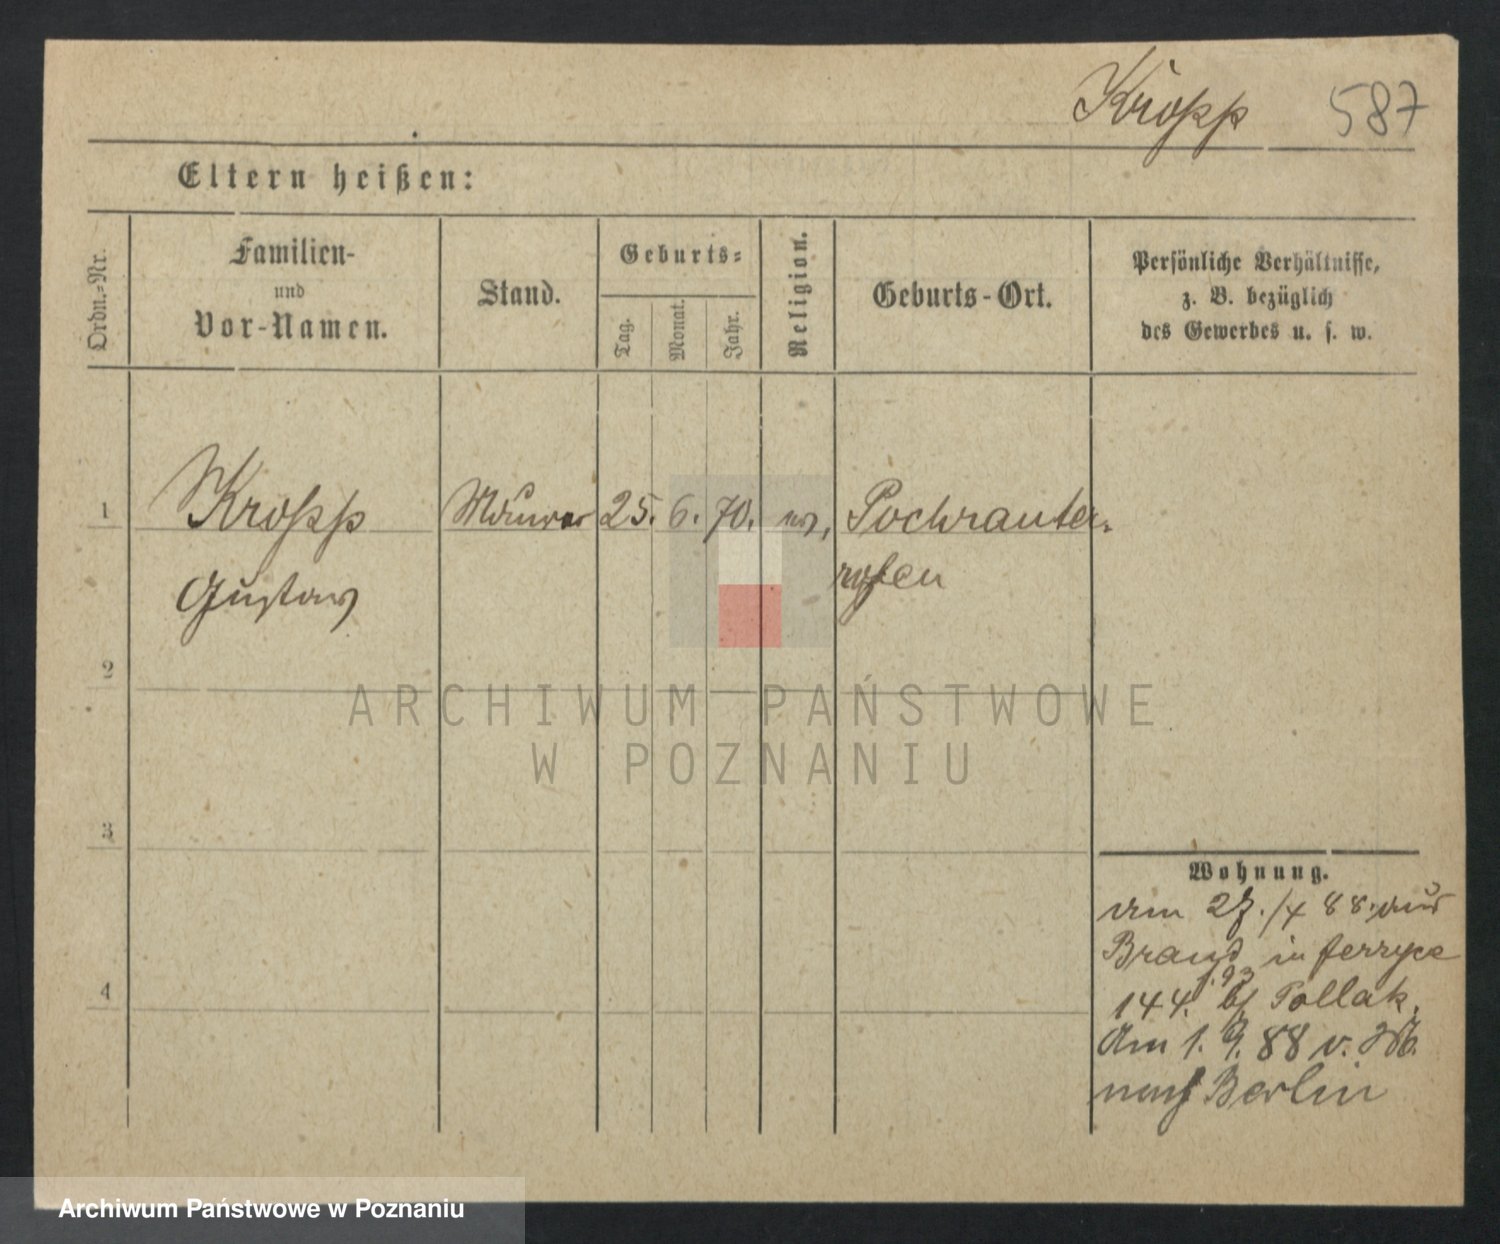 Kropp 587
Eltern heißen:
Ordn.-Nr.
Familien-
und
Vor-Namen.
Stand.
Geburts-
Tag.
Monat.
Jahr.
Religion.
Geburts-Ort.
Persönliche Verhältnisse,
z. B. bezüglich
des Gewerbes u. s. w.
1 Kropp Maurer 25. 6. 70. ev.
Gustav
2
ARCHIWUM PAŃSTWOWE
W POZNANIU
3
Wohnung.
88. aus
in
4
144. Pollak.
Am 1. 9. 88 v.
nach Berlin
Archiwum Państwowe w Poznaniu